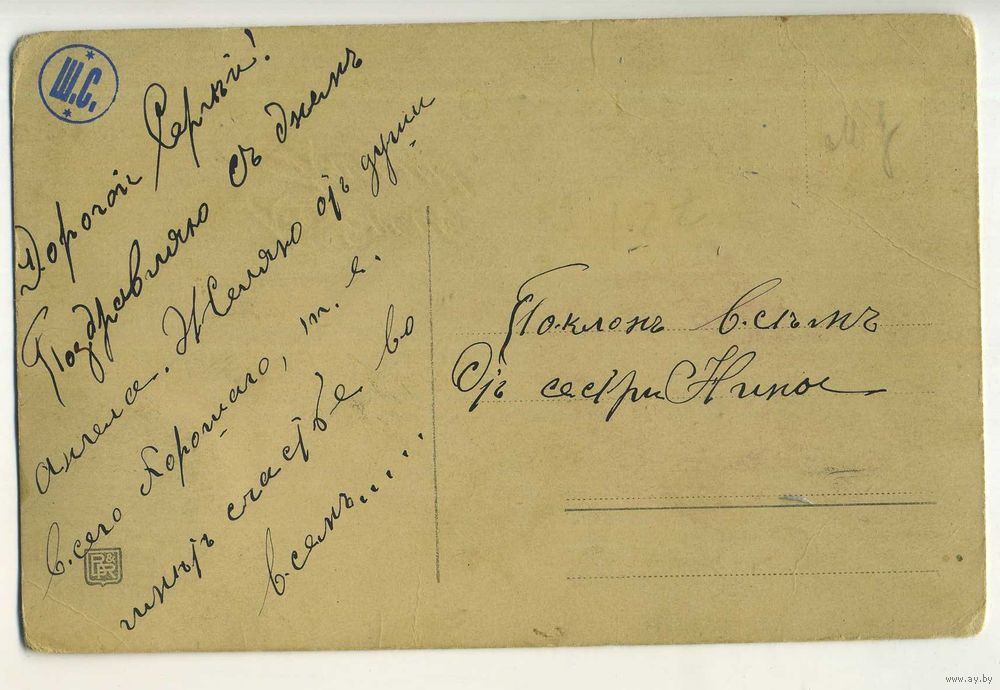 Ш.С.
Дорогой Сергѣй!
Поздравляю съ днемъ
ангела. Желяю отъ души
всего хорошаго, т. е.
счастье во
всемъ.....
Поклонъ всѣмъ
Отъ сестри Нины
P&R
www.ay.by